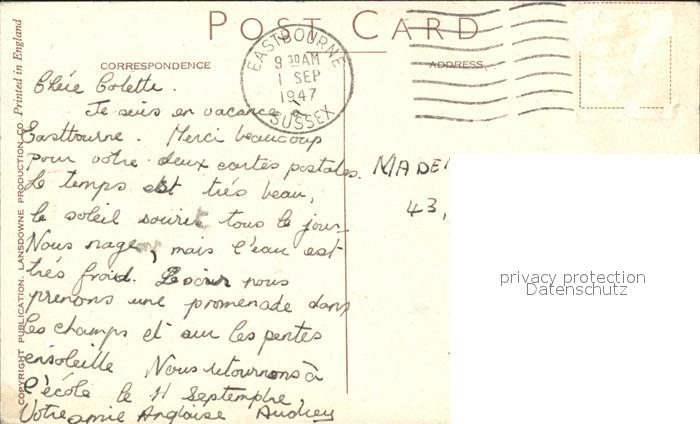 POST CARD
CORRESPONDENCE
ADDRESS
EASTBOURNE
9 30 AM
1 SEP
1947
SUSSEX
Chére Colette.
Je suis en vacance à
Eastbourne. Merci beaucoup
pour votre deux cartes postales.
Le temps est trés beau,
le soleil sourit tous le jour
Nous nage, mais l'eau est
trés froid. Le soir nous
prenons une promenade dans
les champs et sur les pentes
ensoleille Nous retournons à
l'école le 11 Septembre,
Votre amie Anglaise Audrey
MADE
43,
privacy protection
Datenschutz
COPYRIGHT PUBLICATION. LANSDOWNE PRODUCTION CO. Printed in England